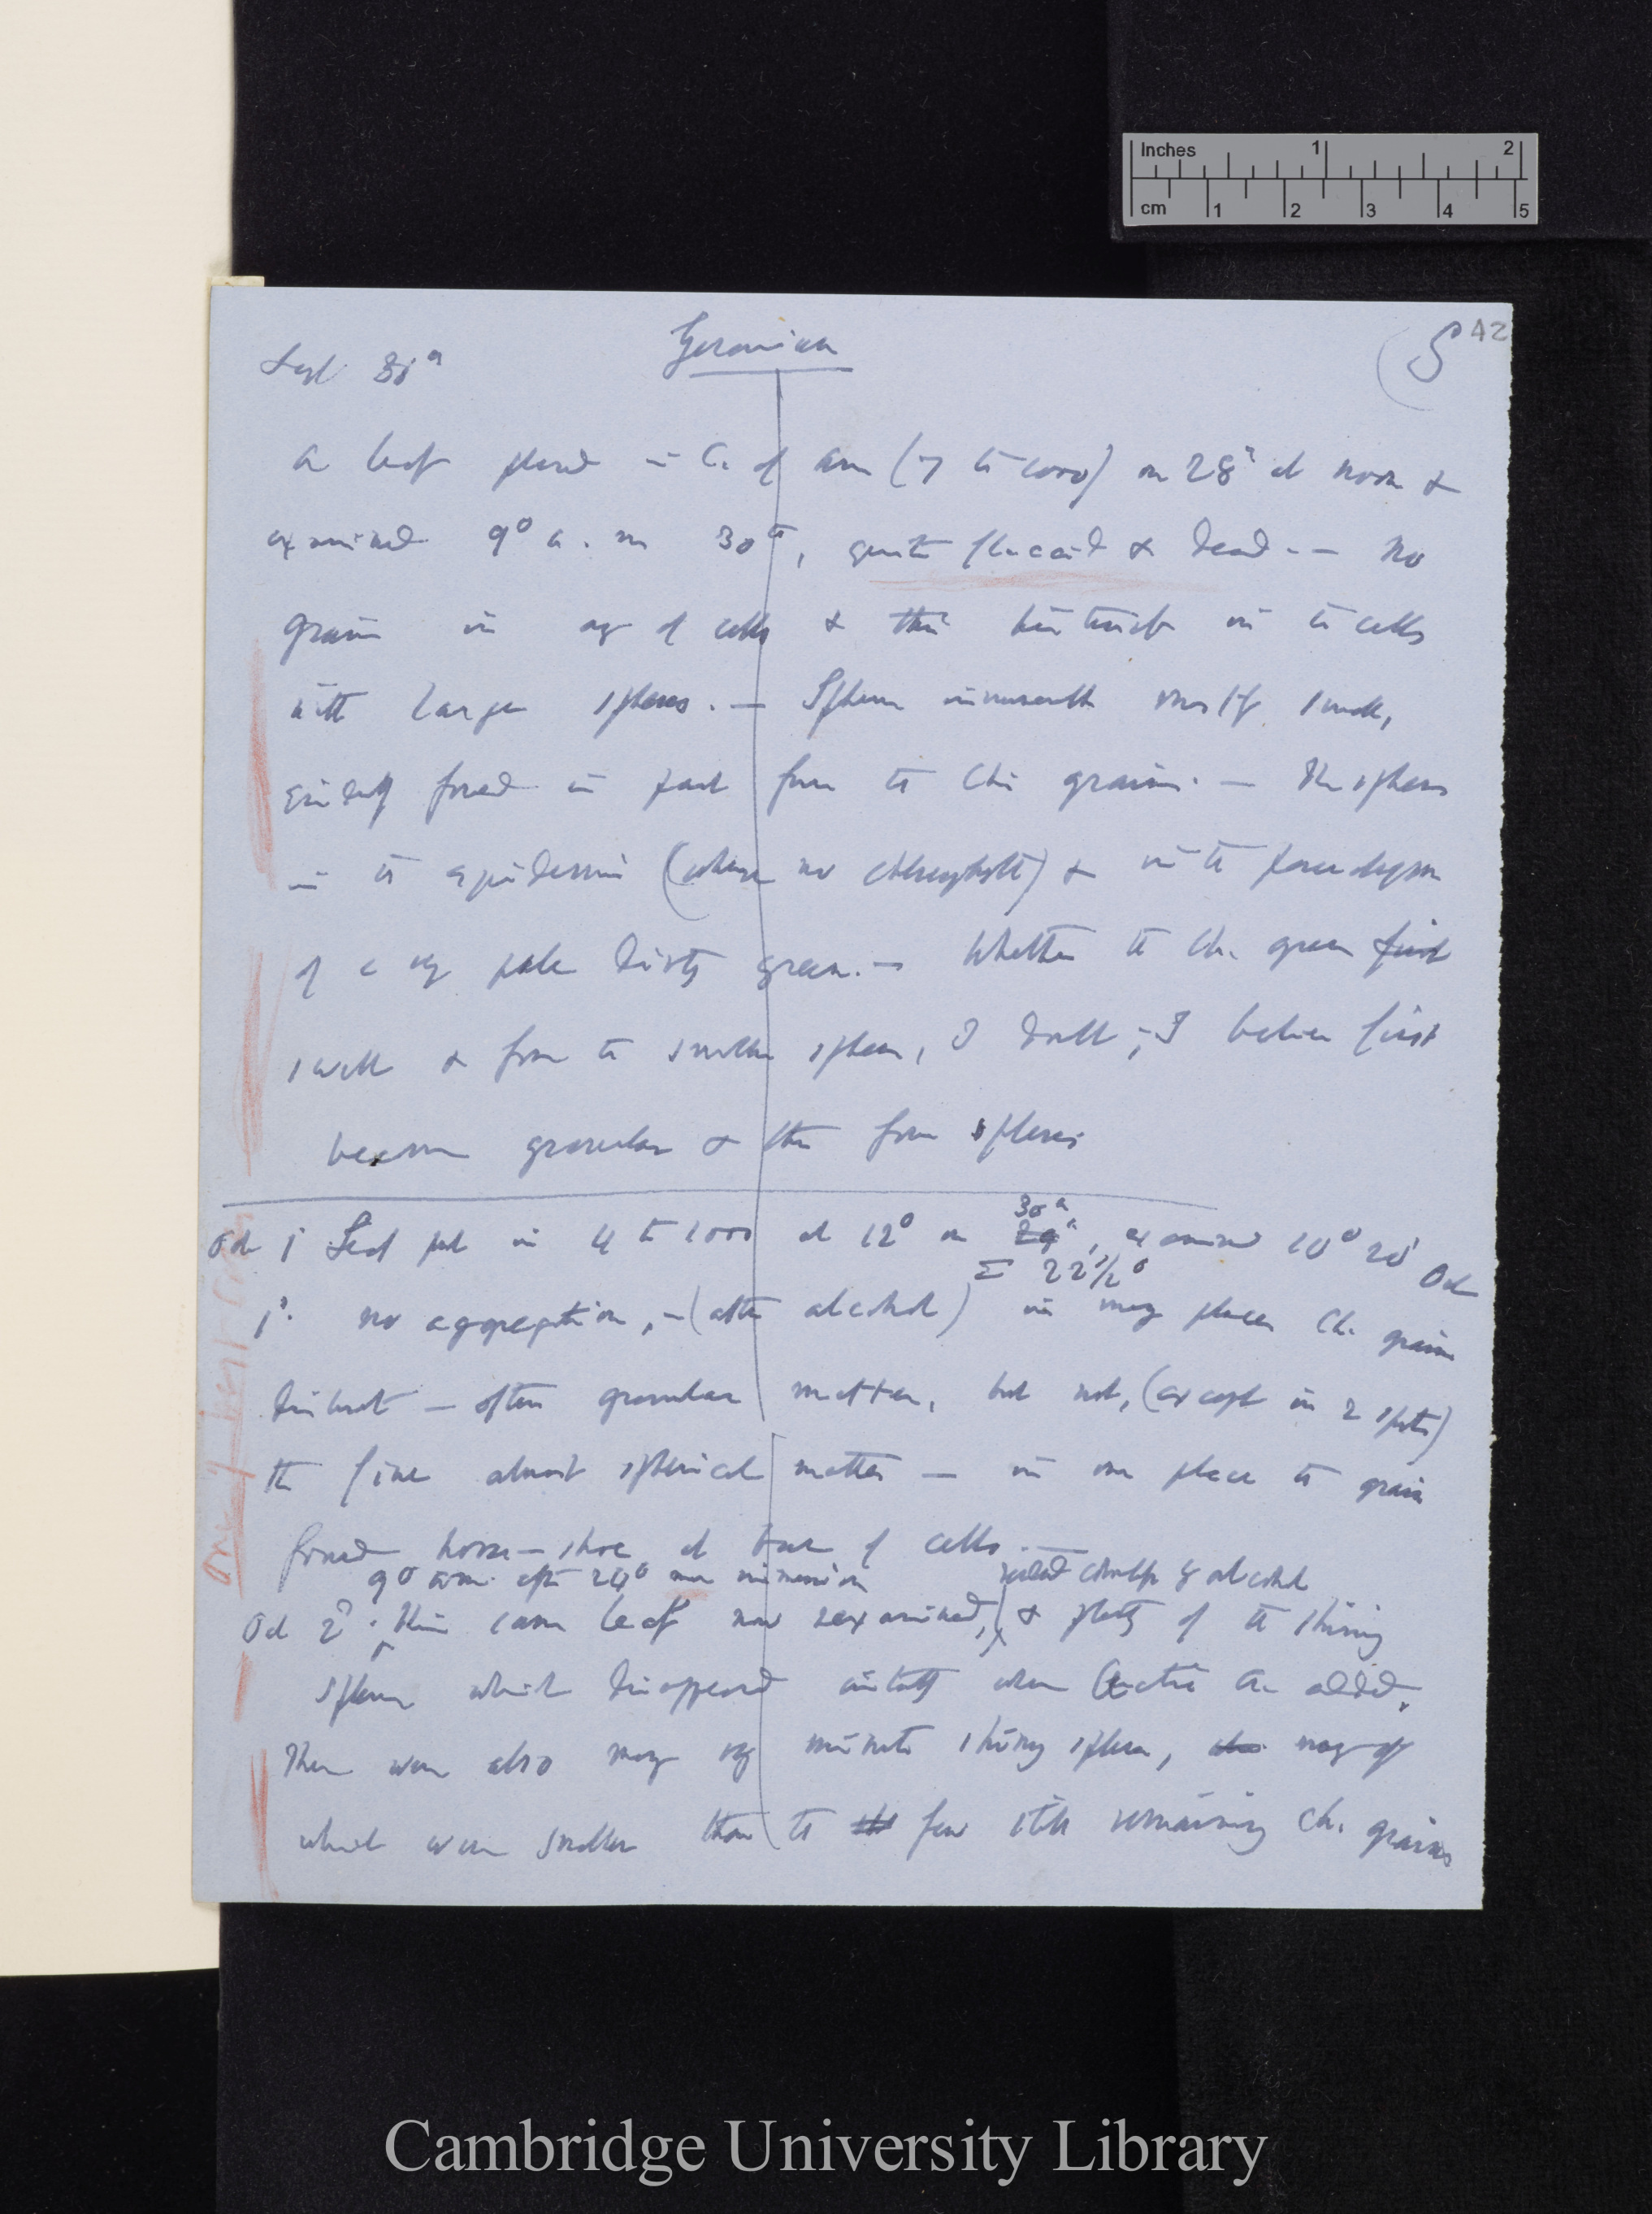 Inches 1 2
cm 1 2 3 4 5
42
Sept 30th Geranium (5
A leaf placed in C. of Am (7 to 1000) on 28th at noon &
examined 9° a.m 30th, quite flaccid & dead. — No
grains in any of cells & this distinct in the cells
with large spheres. — Spheres mostly small,
evidently formed in part from the Chl. grains. — The spheres
in the epidermis (where no chlorophyll) & in the parenchyma
of a very pale dirty green. — Whether the Chl. grains first
swell & form the smaller spheres, I doubt; I believe first
become granular & then form spheres
Oct 1' Leaf put in 4 to 1000 at 12° on 29th 30th, examined 10° 20' Oct
= 22 1/2°
1'. no aggregation, — (after alcohol) in many places Chl. grains
distinct — often granular matter, but not, (except in 2 spots)
the fine almost spherical matter — in one place the grains
formed horse-shoe at base of cells. —
9° a.m. after 24° immersion alcohol
Oct 2d. This same leaf now reexamined, & plenty of the shining
spheres which disappeared instantly when Acetic A. added.
There were also many very minute shining spheres, many of
which were smaller than the few still remaining Chl. grains
Cambridge University Library